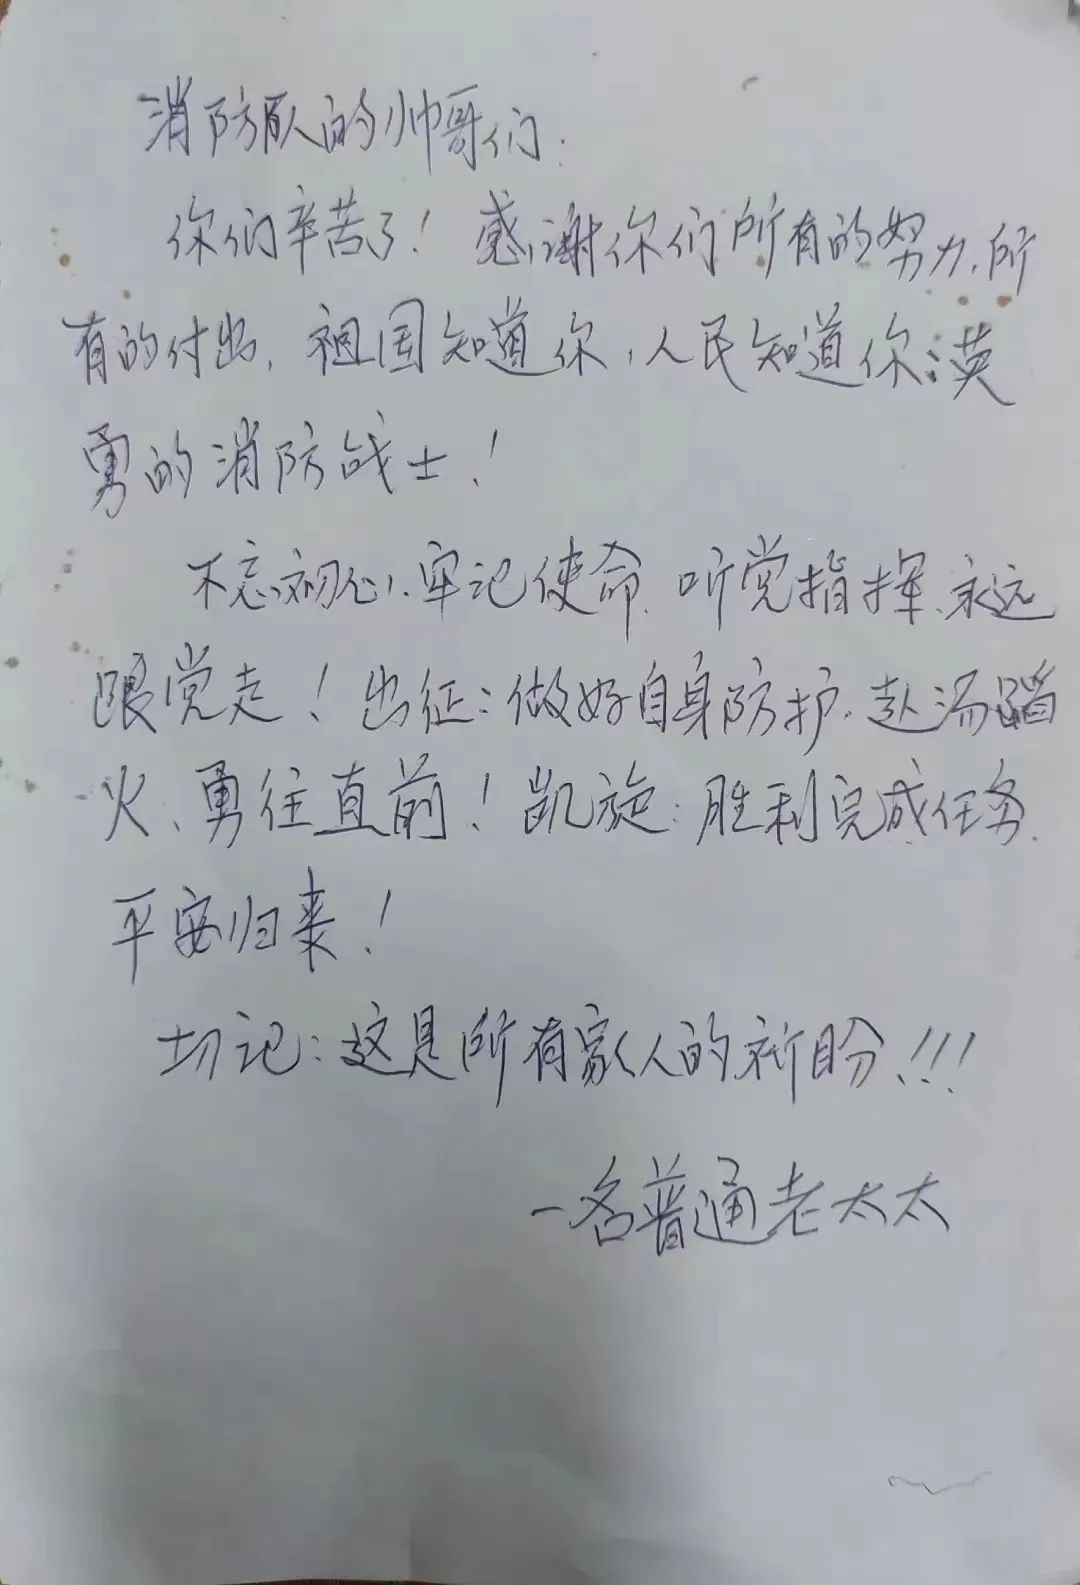 消防队的帅哥们:
你们辛苦了！感谢你们所有的努力、所
有的付出,祖国知道你,人民知道你:英
勇的消防战士！
不忘初心、牢记使命、听党指挥、永远
跟党走！出征:做好自身防护、赴汤蹈
火、勇往直前！凯旋:胜利完成任务、
平安归来！
切记:这是所有家人的祈盼！！！
一名普通老太太